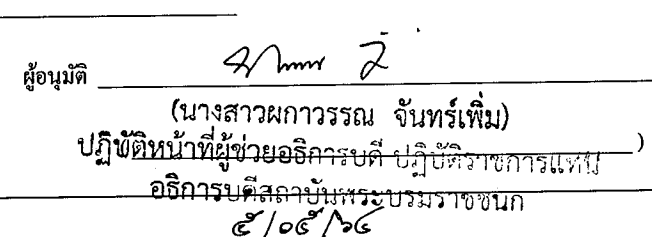 ผู้อนุมัติ
(นางสาวผกาวรรณ จันทร์เพิ่ม)
ปฏิบัติหน้าที่ผู้ช่วยอธิการบดี ปฏิบัติราชการแทน )
อธิการบดีสถาบันพระบรมราชชนก
๕/๐๕/๖๔